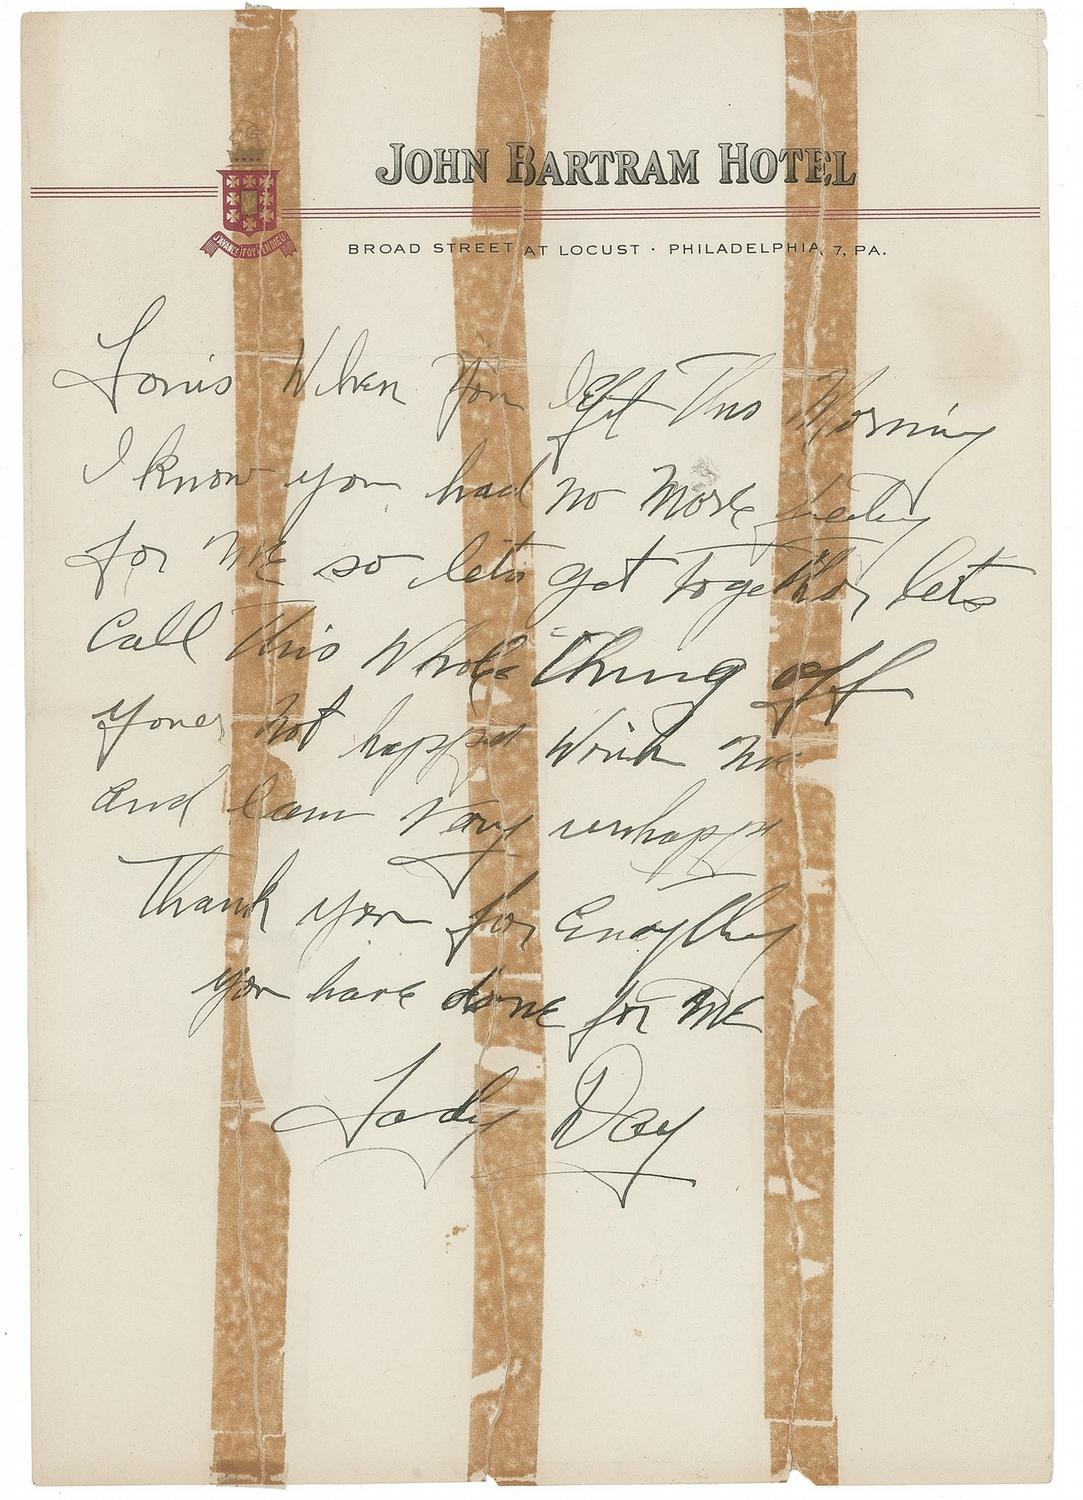 JOHN BARTRAM HOTEL
J'AVANCE FOY EN DIEU
BROAD STREET AT LOCUST · PHILADELPHIA, 7, PA.
Louis When You left This Morning
I know you had no More feeling
for Me so lets get together lets
Call This Whole Thing off
your not happy With Me
and I am Very unhappy
Thank you for Everything
you have done for Me
Lady Day